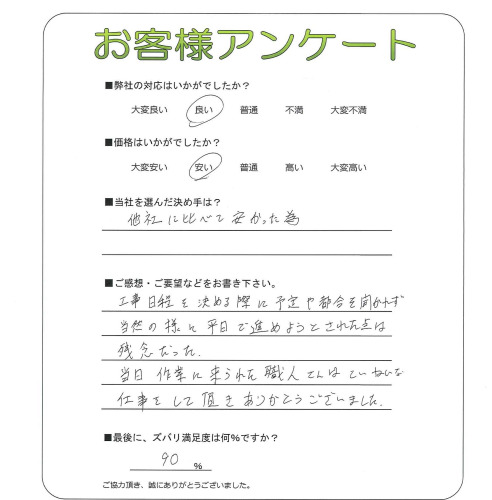 お客様アンケート
■弊社の対応はいかがでしたか？
大変良い 良い 普通 不満 大変不満
■価格はいかがでしたか？
大変安い 安い 普通 高い 大変高い
■当社を選んだ決め手は？
他社に比べて安かった為
■ご感想・ご要望などをお書き下さい。
工事日程を決める際に予定や都合を聞かれず
当然の様に平日で進めようとされた点は
残念だった.
当日 作業に来られた職人さんはていねいな
仕事をして頂きありがとうございました.
■最後に、ズバリ満足度は何%ですか？
90 %
ご協力頂き、誠にありがとうございました。